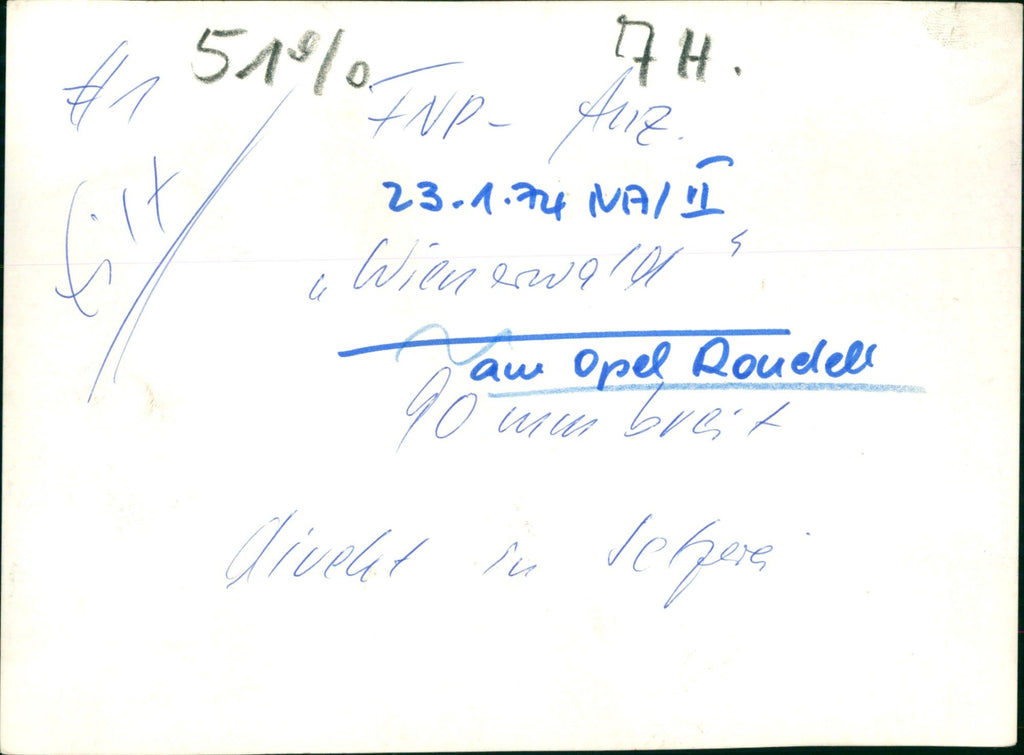 51% 7H.
#1 FNP- Anz.
Eilt
23.1.74 NA/II
„Wienerwald“
am Opel Rondell
90 mm breit
direkt in Setzerei